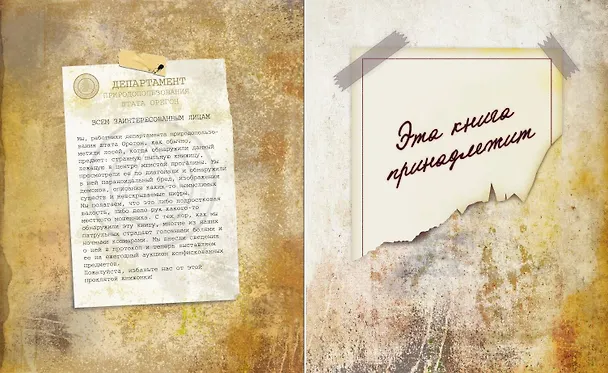 ДЕПАРТАМЕНТ
ПРИРОДОПОЛЬЗОВАНИЯ
ШТАТА ОРЕГОН
ВСЕМ ЗАИНТЕРЕСОВАННЫМ ЛИЦАМ
Мы, работники департамента природопользо-
вания штата Орегон, как обычно,
метили лосей, когда обнаружили данный
предмет: странную пыльную книжицу,
лежащую в центре мглистой прогалины. Мы
просмотрели ее по диагонали и обнаружили
в ней параноидальный бред, изображения
демонов, описания каких-то немыслимых
существ и нераскрываемые шифры.
Мы полагаем, что это либо подростковая
шалость, либо дело рук какого-то
местного мошенника. С тех пор, как мы
обнаружили эту книгу, многие из наших
патрульных страдают головными болями и
ночными кошмарами. Мы внесли сведения
о ней в протокол и теперь выставляем
ее на ежегодный аукцион конфискованных
предметов.
Пожалуйста, избавьте нас от этой
проклятой книжонки!
Эта книга
принадлежит